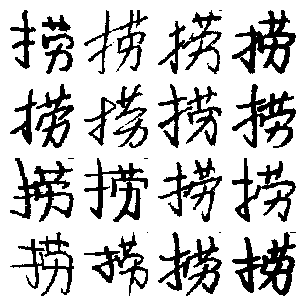 捞捞捞捞
捞捞捞捞
捞捞捞捞
捞捞捞捞